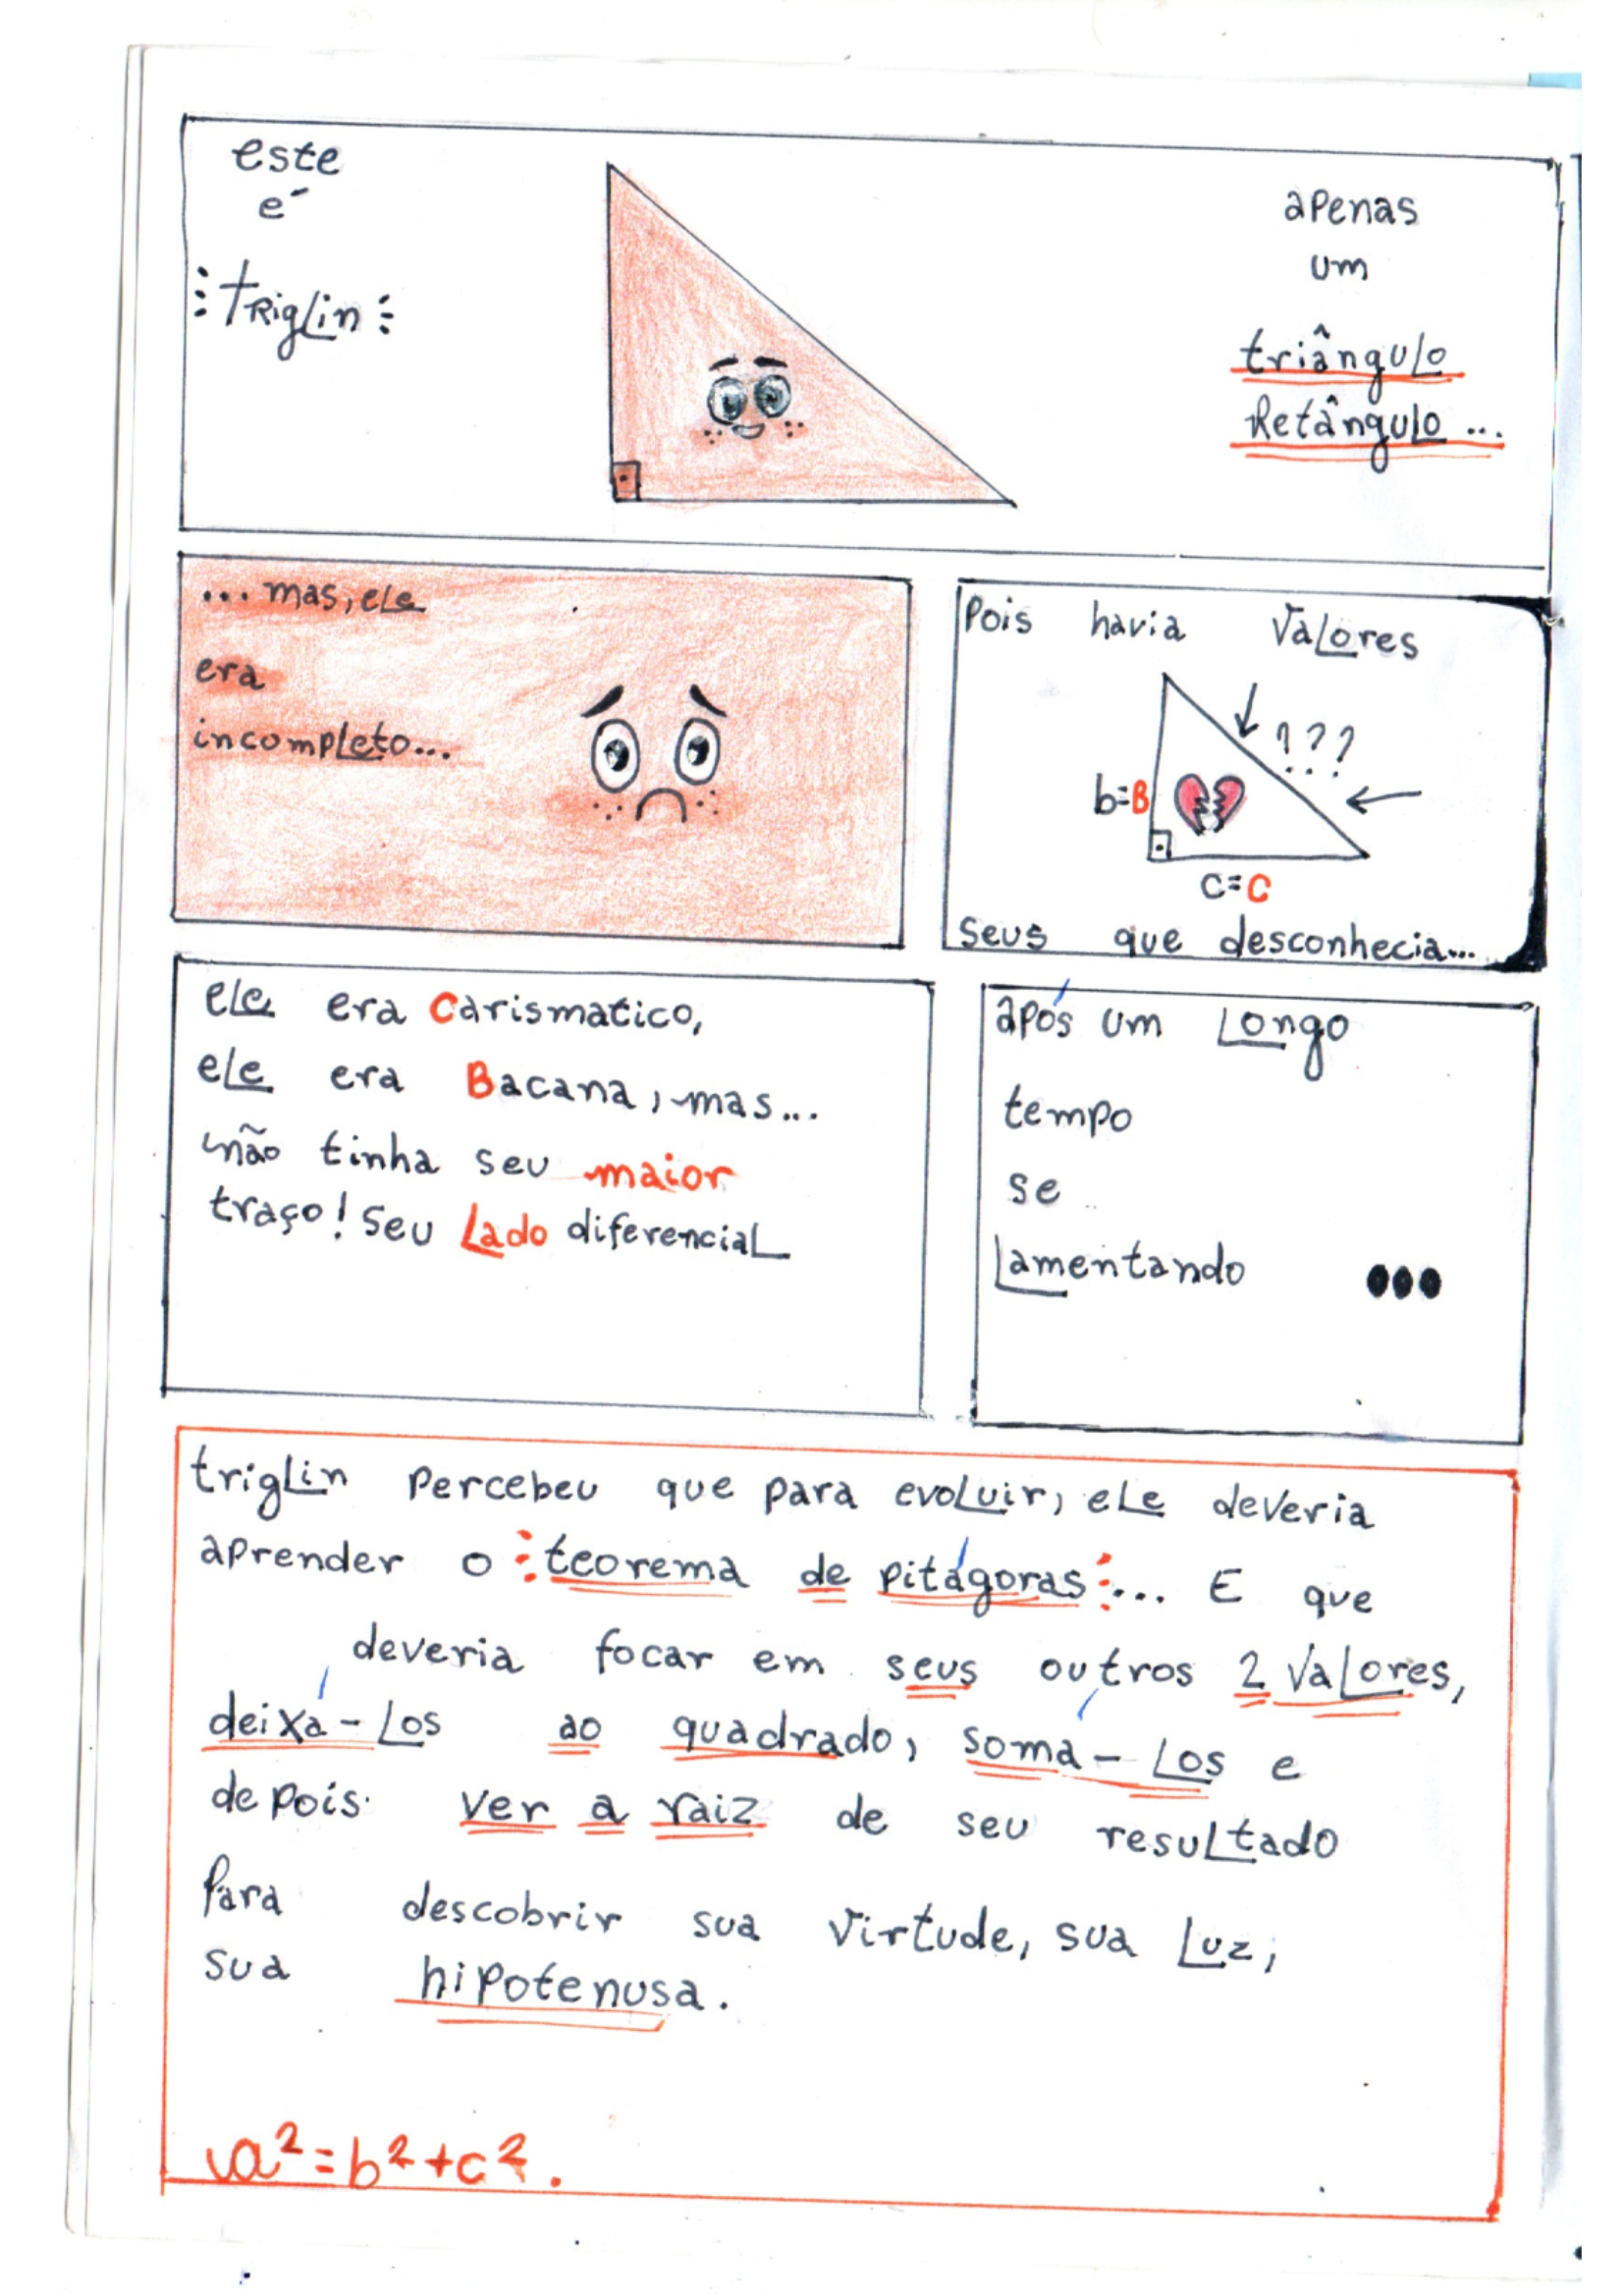 este
é
triglin
apenas
um
triângulo
Retângulo...
...mas, ele
era
incompleto...
Pois havia Valores
???
b=B
c=C
Seus que desconhecia...
ele era Carismatico,
ele era Bacana, mas...
não tinha seu maior
traço! Seu Lado diferencial
após um Longo
tempo
se
Lamentando ...
triglin Percebeu que para evoluir, ele deveria
aprender o teorema de pitágoras... E que
deveria focar em seus outros 2 Valores,
deixá-Los ao quadrado, somá-Los e
depois ver a raiz de seu resultado
Para descobrir sua Virtude, sua Luz,
sua hipotenusa.
a²=b²+c².